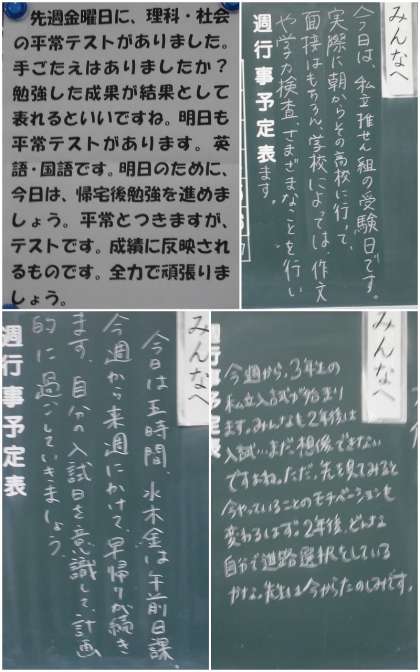 先週金曜日に、理科・社会
の平常テストがありました。
手ごたえはありましたか？
勉強した成果が結果として
表れるといいですね。明日も
平常テストがあります。英
語・国語です。明日のために、
今日は、帰宅後勉強を進めま
しょう。平常とつきますが、
テストです。成績に反映され
るものです。全力で頑張りま
しょう。
みんなへ
今日は、私立推せん組の受験日です。
実際に朝からその高校に行って、
面接はもちろん、学校によっては、作文
や学力検査、さまざまなことを行い
ます。
週行事予定表
みんなへ
今日は五時間、水木金は午前日課。
今週から来週にかけて、早帰りが続き
ます。自分の入試日を意識して、計画
的に過ごしていきましょう。
週行事予定表
みんなへ
今週から、3年生の
私立入試が始まり
ます。みんなも2年後は
入試…まだ想像できない
ですよね。ただ、先を見てみると
今やっていることのモチベーションも
変わるはず。2年後、どんな
自分で進路選択をしている
かな。先生は今からたのしみです。